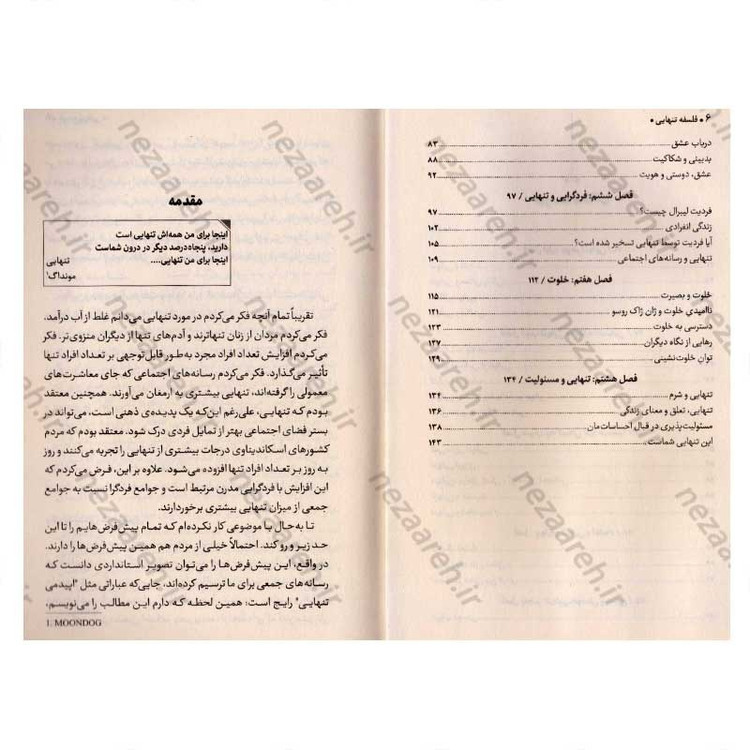 ۶ • فلسفه تنهایی •
درباب عشق ۸۲
بدبینی و شکاکیت ۸۸
عشق، دوستی و هویت ۹۲
فصل ششم: فردگرایی و تنهایی / ۹۷
فردیت لیبرال چیست؟ ۹۷
زندگی انفرادی ۱۰۲
آیا فردیت توسط تنهایی تسخیر شده است؟ ۱۰۵
تنهایی و رسانه‌های اجتماعی ۱۰۹
فصل هفتم: خلوت / ۱۱۲
خلوت و بصیرت ۱۱۵
ناامیدی خلوت و ژان ژاک روسو ۱۲۱
دسترسی به خلوت ۱۲۳
رهایی از نگاه دیگران ۱۲۷
توانِ خلوت‌نشینی ۱۲۹
فصل هشتم: تنهایی و مسئولیت / ۱۳۴
تنهایی و شرم ۱۳۴
تنهایی، تعلق و معنای زندگی ۱۳۶
مسئولیت‌پذیری در قبال احساسات‌مان ۱۳۸
این تنهایی شماست ۱۴۳
مقدمه
اینجا برای من همه‌اش تنهایی است
دارید، پنجاه‌درصد دیگر در درون شماست
اینجا برای من تنهایی....
تنهایی
مونداگ۱
تقریباً تمام آنچه فکر می‌کردم در مورد تنهایی می‌دانم غلط از آب درآمد.
فکر می‌کردم مردان از زنان تنهاترند و آدم‌های تنها از دیگران منزوی‌تر. فکر
می‌کردم افزایش تعداد افراد مجرد به‌طور قابل‌توجهی بر تعداد افراد تنها
تأثیر می‌گذارد. فکر می‌کردم رسانه‌های اجتماعی که جای معاشرت‌های
معمولی را گرفته‌اند، تنهایی بیشتری به ارمغان می‌آورند. همچنین معتقد
بودم که تنهایی، علی‌رغم این‌که یک پدیده‌ی ذهنی است، می‌تواند در
بستر فضای اجتماعی بهتر از تمایل فردی درک شود. معتقد بودم که مردم
کشورهای اسکاندیناوی درجات بیشتری از تنهایی را تجربه می‌کنند و روز
به روز بر تعداد افراد تنها افزوده می‌شود. علاوه بر این، فرض می‌کردم که
این افزایش با فردگرایی مدرن مرتبط است و جوامع فردگرا نسبت به جوامع
جمعی از میزان تنهایی بیشتری برخوردارند.
تا به حال با موضوعی کار نکرده‌ام که تمام پیش‌فرض‌هایم را تا این
حد زیر و رو کند. احتمالاً خیلی از مردم هم همین پیش‌فرض‌ها را دارند.
در واقع، این پیش‌فرض‌ها را می‌توان تصویر استانداردی دانست که
رسانه‌های جمعی برای ما ترسیم کرده‌اند، جایی‌که عباراتی مثل "اپیدمی
تنهایی" رایج است: همین لحظه که دارم این مطالب را می‌نویسم،
1. MOONDOG
nezaareh.ir
nezaareh.ir
nezaareh.ir
nezaareh.ir
nezaareh.ir
nezaareh.ir